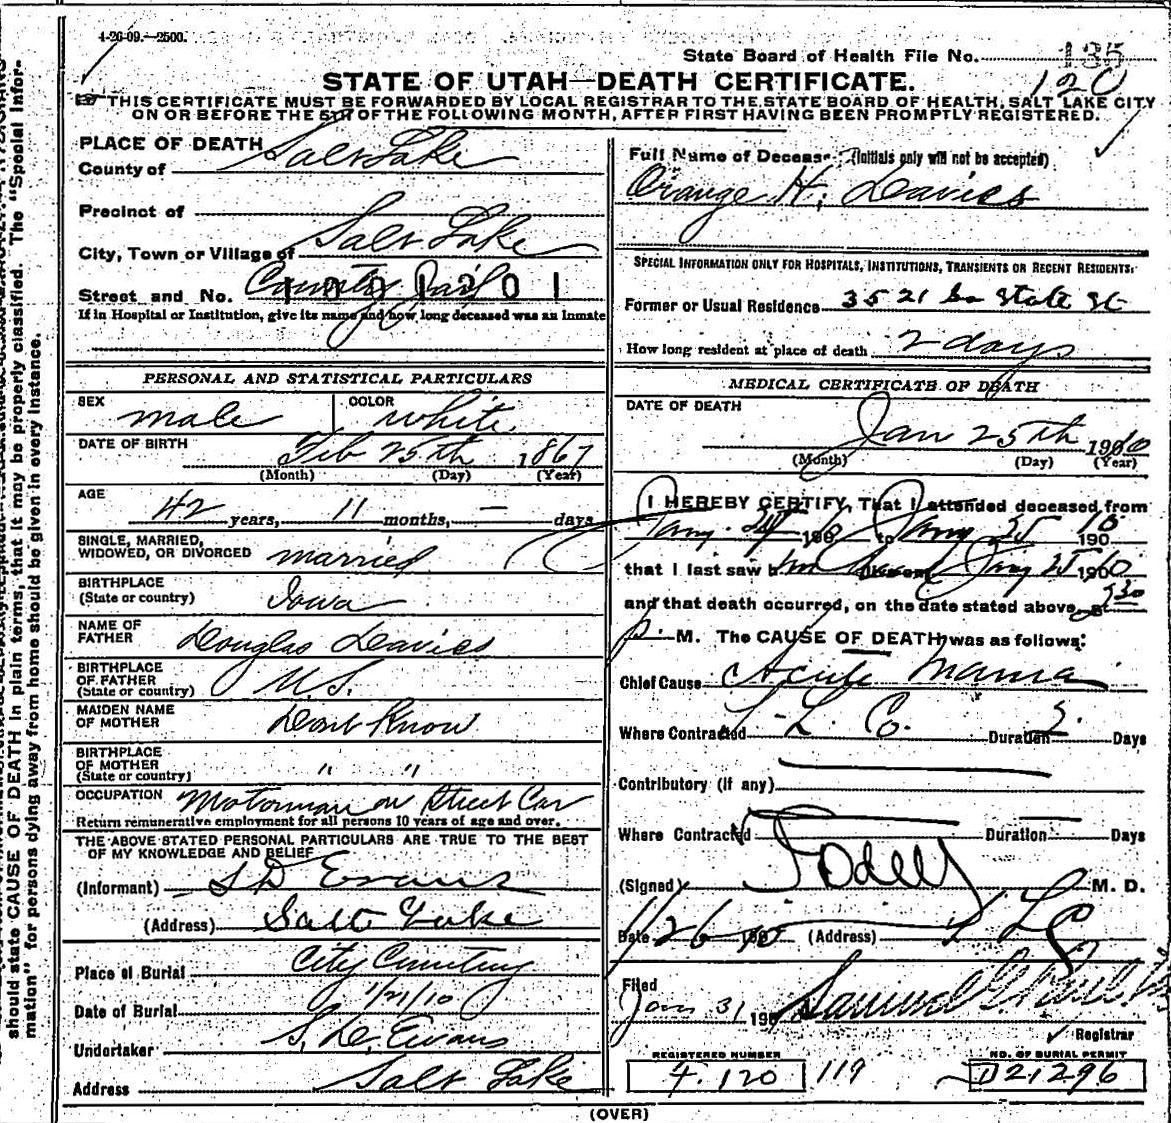 4-26-09.—2500.
State Board of Health File No. 135
STATE OF UTAH—DEATH CERTIFICATE.
120
THIS CERTIFICATE MUST BE FORWARDED BY LOCAL REGISTRAR TO THE STATE BOARD OF HEALTH, SALT LAKE CITY
ON OR BEFORE THE 5TH OF THE FOLLOWING MONTH, AFTER FIRST HAVING BEEN PROMPTLY REGISTERED.
PLACE OF DEATH
County of Salt Lake
Precinct of
City, Town or Village of Salt Lake
Street and No. County Jail
1001201
If in Hospital or Institution, give its name and how long deceased was an Inmate
PERSONAL AND STATISTICAL PARTICULARS
SEX male COLOR white
DATE OF BIRTH Feb 25th 1867
(Month) (Day) (Year)
AGE
42 years, 11 months, — days
SINGLE, MARRIED,
WIDOWED, OR DIVORCED married
BIRTHPLACE
(State or country) Iowa
NAME OF
FATHER Douglas Davies
BIRTHPLACE
OF FATHER
(State or country) U.S.
MAIDEN NAME
OF MOTHER Dont Know
BIRTHPLACE
OF MOTHER
(State or country) " "
OCCUPATION Motorman on Street Car
Return remunerative employment for all persons 10 years of age and over.
THE ABOVE STATED PERSONAL PARTICULARS ARE TRUE TO THE BEST
OF MY KNOWLEDGE AND BELIEF
(Informant) S D Evans
(Address) Salt Lake
Place of Burial City Cemetery
Date of Burial 1/21/10
Undertaker S. D. Evans
Address Salt Lake
Full Name of Deceased (Initials only will not be accepted)
Orange H. Davies
SPECIAL INFORMATION ONLY FOR HOSPITALS, INSTITUTIONS, TRANSIENTS OR RECENT RESIDENTS:
Former or Usual Residence 3521 So State St
How long resident at place of death 2 days
MEDICAL CERTIFICATE OF DEATH
DATE OF DEATH
Jan 25th 1910
(Month) (Day) (Year)
I HEREBY CERTIFY, That I attended deceased from
Jany. 24 190 to Jany 25 10 190
that I last saw him alive on Jany 25 1910
and that death occurred, on the date stated above, at 9 30
p. M. The CAUSE OF DEATH was as follows:
Chief Cause Acute Mania
Where Contracted S. L. Co. Duration 2 Days
Contributory (if any)
Where Contracted Duration Days
(Signed) Odell M. D.
Date 1/26 190 (Address) S L C
Filed
Jan 31 190 Samuel G.
Registrar
REGISTERED NUMBER
4. 120
119
NO. OF BURIAL PERMIT
D21296
(OVER)
should state CAUSE OF DEATH in plain terms, that it may be properly classified. The "Special Infor-
mation" for persons dying away from home should be given in every instance.